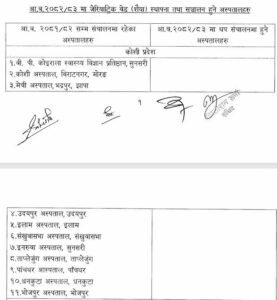 आ.व.२०८२/८३ मा जेरियाट्रिक बेड (शैया) स्थापना तथा सञ्चालन हुने अस्पतालहरु
आ.व. २०८१/८२ सम्म संचालनमा रहेका अस्पतालहरु
आ.व.२०८२/८३ मा थप संचालनमा हुने अस्पतालहरु
कोशी प्रदेश
१.बी. पी. कोइराला स्वास्थ्य विज्ञान प्रतिष्ठान, सुनसरी
२.कोशी अस्पताल, विराटनगर, मोरङ
३.मेची अस्पताल,भद्रपुर, झापा
४.उदयपुर अस्पताल,उदयपुर
५.इलाम अस्पताल, इलाम
६.संखुवासभा अस्पताल, संखुवासभा
७.इनरुवा अस्पताल, सुनसरी
८.ताप्लेजुंग अस्पताल, ताप्लेजुंग
९.पांचथर अस्पताल, पाँचथर
१०.धनकुटा अस्पताल, धनकुटा
११.भोजपुर अस्पताल, भोजपुर